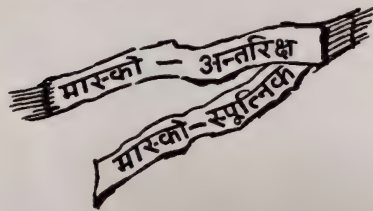 मास्को – अन्तरिक्ष
मास्को–स्पूत्निक